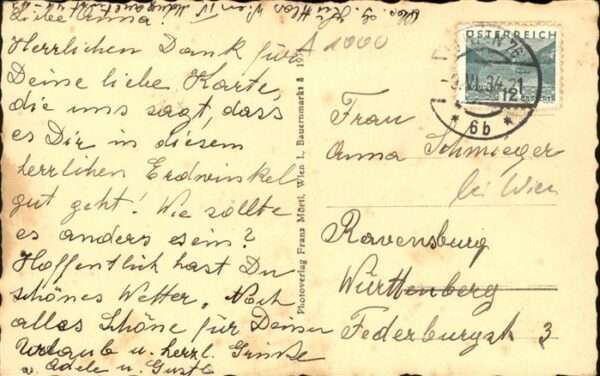 Liebe Anna
Herrlichen Dank für
Deine liebe Karte,
die uns sagt, dass
es Dir in diesem
herrlichen Erdwinkel
gut geht! Wie sollte
es anders sein?
Hoffentlich hast Du
schönes Wetter. Noch
alles Schöne für Deinen
Urlaub u. herzl. Grüße
v. Adele u. Gustl
A 1000
Photoverlag Franz Mörtl, Wien I., Bauernmarkt 8
ÖSTERREICH
12
WIEN 76
34
* 6b *
Frau
Anna Schmieger
bei Wien
Ravensburg
Württenberg
Federburgstr 3